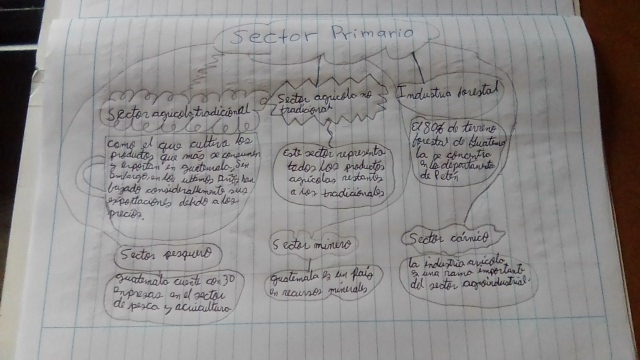 Sector Primario
Sector agricola tradicional
como el que cultiva los
productos que más se consumen
y exportan en guatemala, Sin
embargo, en los ultimos años han
bajado considerablemente sus
exportaciones debido a los
precios.
Sector agricola no
tradicional
Este sector representa
todos los productos
agricolas restantes
a los tradicionales
Industria forestal
El 80% de terreno
forestal de Guatemala
se concentra
en la departamento
de Petén
Sector pesquero
guatemala cuenta con 30
empresas en el sector
de pesca y acuicultura
Sector minero
guatemala es un país
en recursos minerales
Sector cárnico
la industria avicola
es una rama importante
del sector agroindustrial.